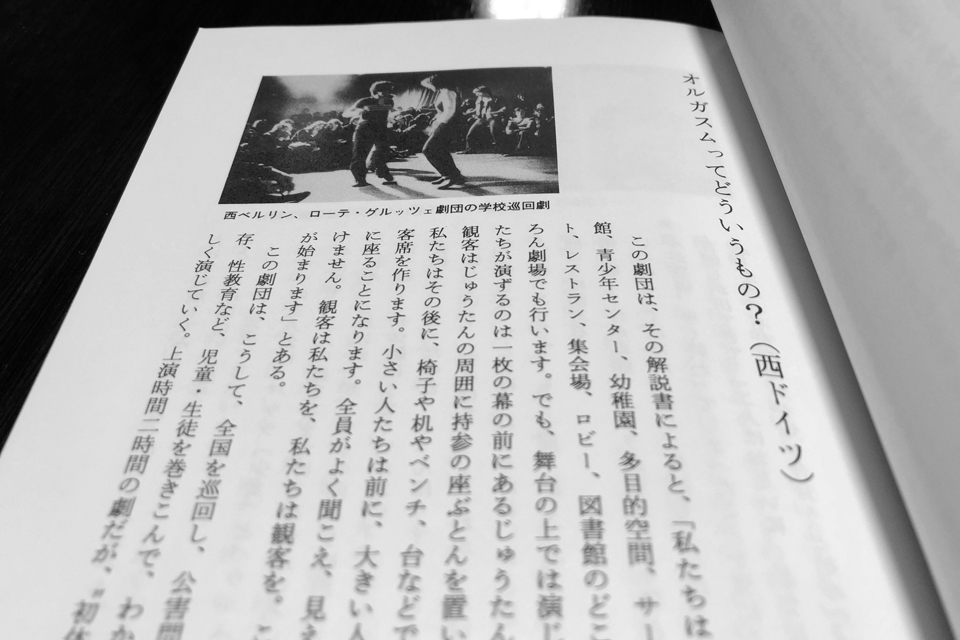 オルガスムってどういうもの?(西ドイツ)
西ベルリン、ローテ・グルッツェ劇団の学校巡回劇
この劇団は、その解説書によると、「私たちは
館、青少年センター、幼稚園、多目的空間、サー
ト、レストラン、集会場、ロビー、図書館のどこ
ろん劇場でも行います。でも、舞台の上では演じ
たちが演ずるのは一枚の幕の前にあるじゅうたん
観客はじゅうたんの周囲に持参の座ぶとんを置い
私たちはその後に、椅子や机やベンチ、台などで
客席を作ります。小さい人たちは前に、大きい人
に座ることになります。全員がよく聞こえ、見え
けません。観客は私たちを、私たちは観客を。こ
が始まります」とある。
この劇団は、こうして、全国を巡回し、公害問
存、性教育など、児童・生徒を巻きこんで、わか
しく演じていく。上演時間二時間の劇だが、〝初体